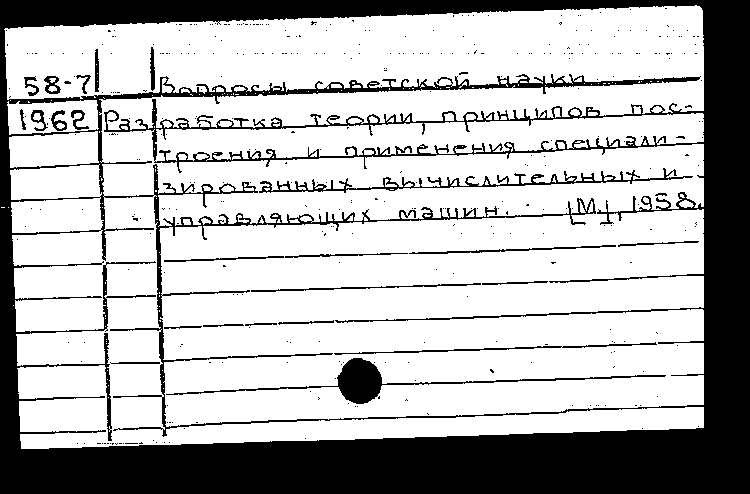 58-7 Вопросы советской науки
1962 Разработка теории, принципов пос-
троения и применения специали-
зированных вычислительных и
управляющих машин. [М.], 1958.